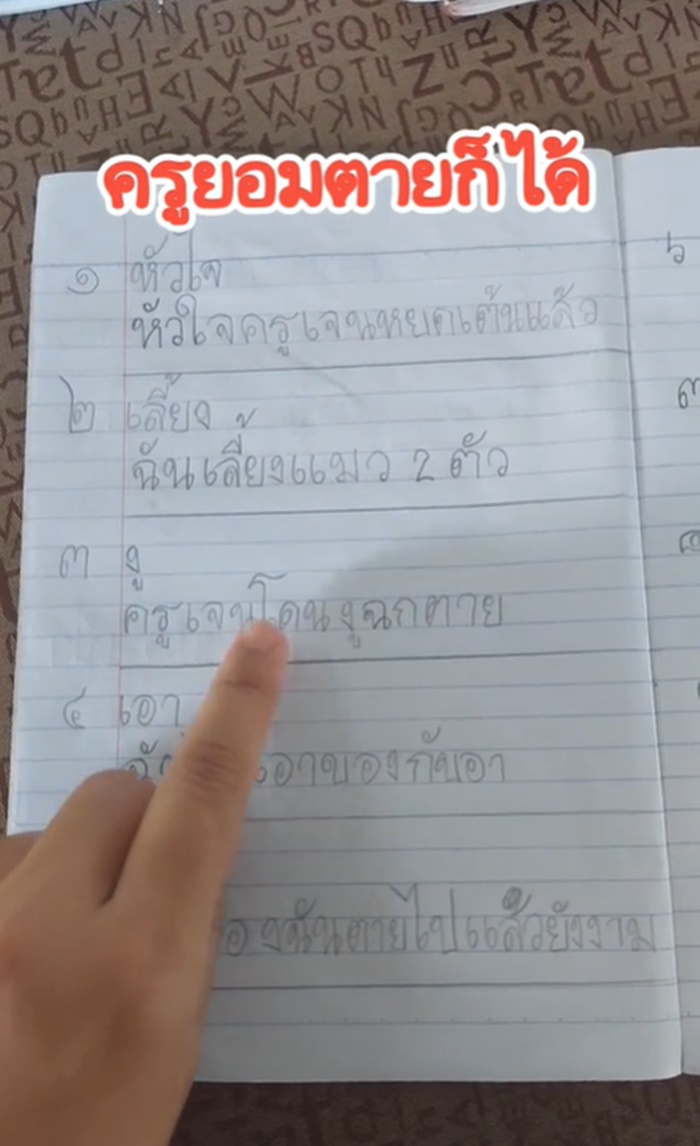 ครูยอมตายก็ได้
๑ หัวใจ
หัวใจครูเจนหยุดเต้นแล้ว
๒ เลี้ยง
ฉันเลี้ยงแมว 2 ตัว
๓ งู
ครูเจนโดนงูฉกตาย
๔ เอา
เอาของกับอา
องฉันตายไปแล้วยังงาม